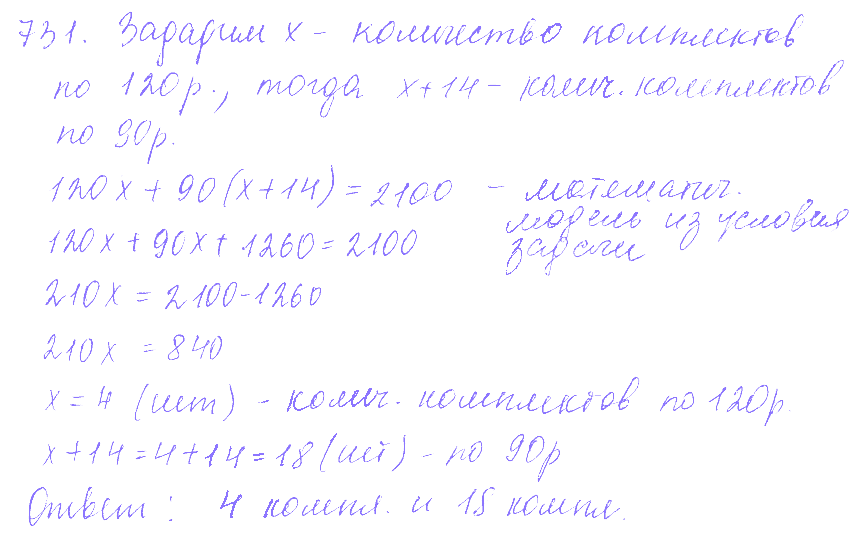 731. Зададим x – количество комплектов
по 120р., тогда x+14 – колич. комплектов
по 90р.
120x + 90(x+14) = 2100 – математич.
модель из условия
задачи
120x + 90x + 1260 = 2100
210x = 2100-1260
210x = 840
x = 4 (шт) – колич. комплектов по 120р.
x+14 = 4+14 = 18 (шт) – по 90р
Ответ: 4 компл. и 18 компл.